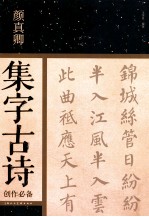 颜真卿
集字古诗
创作必备
錦城絲管日紛紛
半入江風半入雲
此曲祗應天上有